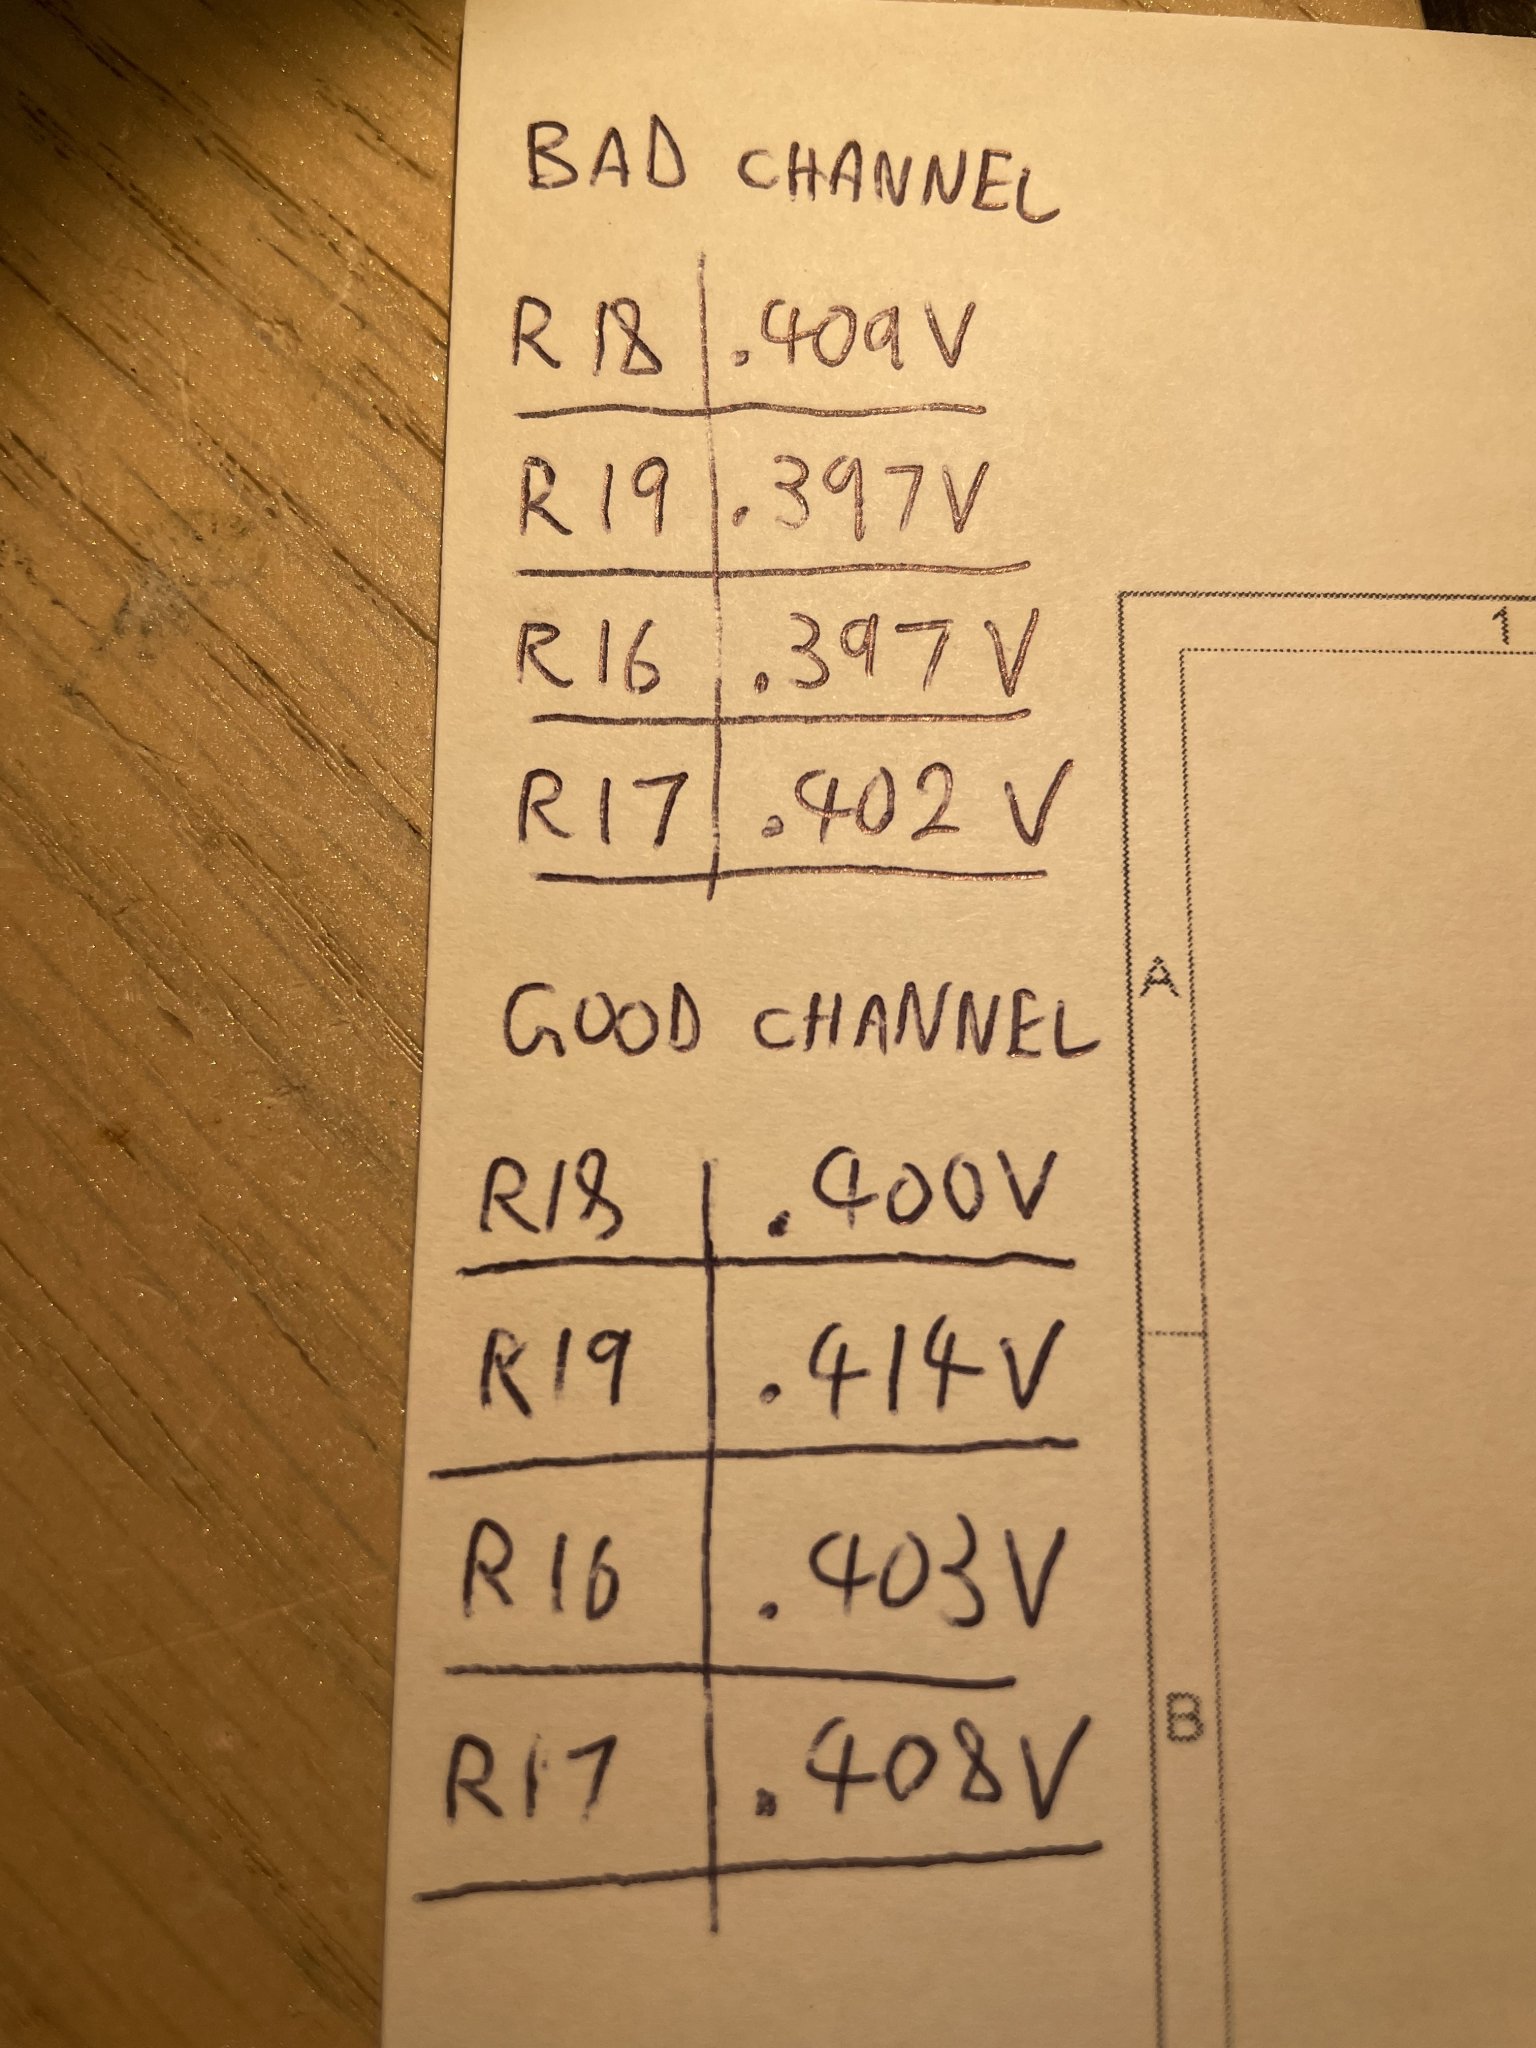 BAD CHANNEL
R18 .409V
R19 .397V
R16 .397V
R17 .402V
GOOD CHANNEL
R18 .400V
R19 .414V
R16 .403V
R17 .408V
1
A
B